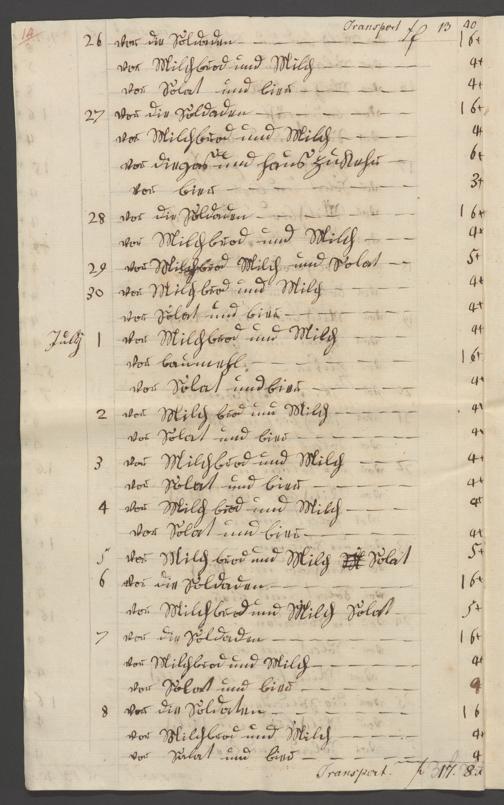 14
Transport ff 13 40
26 vor die Soldaden 16x
vor Milchbrod und Milch 4x
vor Solat und bier 4x
27 vor die Soldaden 16x
vor Milchbrod und Milch 4x
vor die und hauß 6x
vor bier 3x
28 vor die Soldaden 16x
vor Milchbrod und Milch 4x
29 vor Milchbrod Milch und Solat 5x
30 vor Milchbrod und Milch 4x
vor Solat und bier 4x
July 1 vor Milchbrod und Milch 4x
vor baumehl 16x
vor Solat und bier 4x
2 vor Milch brod und Milch 4x
vor Solat und bier 4x
3 vor Milchbrod und Milch 4x
vor Solat und bier 4x
4 vor Milchbrod und Milch 4x
vor Solat und bier 4x
5 vor Milchbrod und Milch Solat 5x
6 vor die Soldaden 16x
vor Milchbrod und Milch Solat 5x
7 vor die Soldaden 16x
vor Milchbrod und Milch 4x
vor Solat und bier 4
8 vor die Soldaten 16
vor Milchbrod und Milch 4x
vor Solat und bier 4
Transport. f 17. 8x